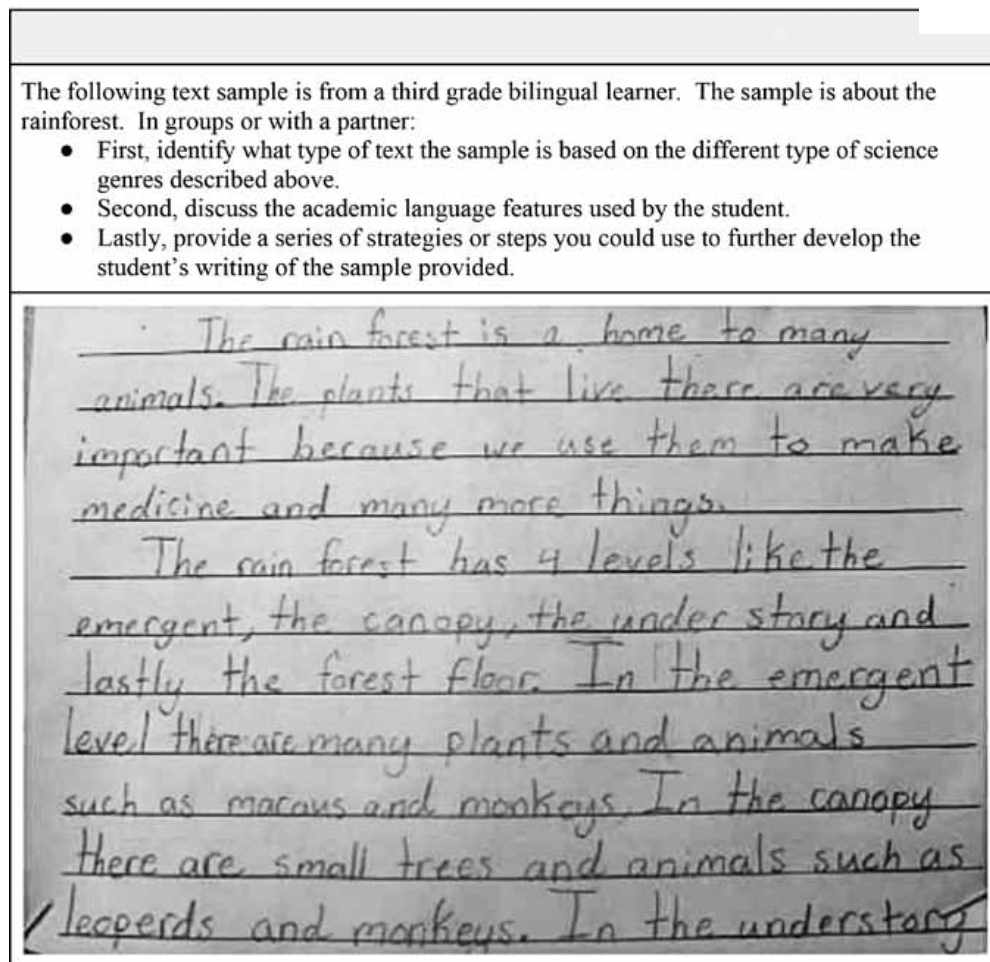 The following text sample is from a third grade bilingual learner.  The sample is about the
rainforest.  In groups or with a partner:
● First, identify what type of text the sample is based on the different type of science
genres described above.
● Second, discuss the academic language features used by the student.
● Lastly, provide a series of strategies or steps you could use to further develop the
student's writing of the sample provided.
The rain forest is a home to many
animals. The plants that live there are very
important because we use them to make
medicine and many more things.
The rain forest has 4 levels like the
emergent, the canopy, the under story and
lastly the forest floor. In the emergent
level there are many plants and animals
such as macaws and monkeys. In the canopy
there are small trees and animals such as
leoperds and monkeys. In the understory